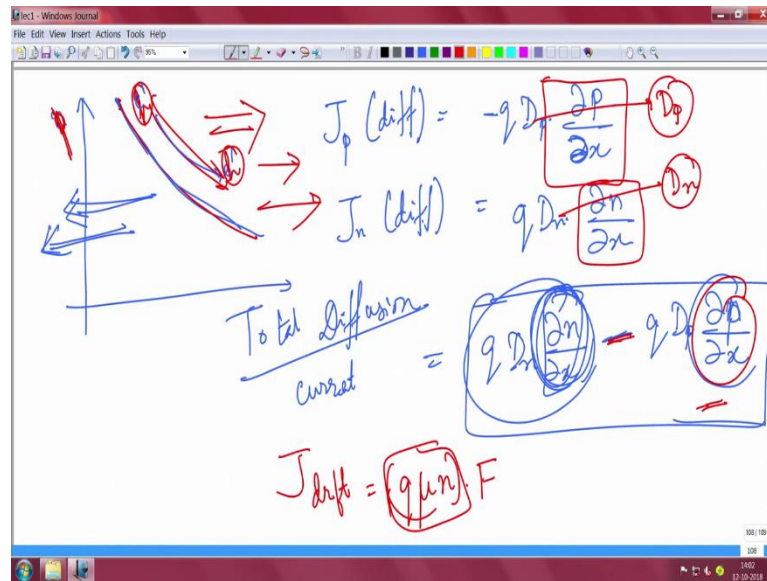 lec1 - Windows Journal
File Edit View Insert Actions Tools Help
95%
p
J_p (diff) = -q D_p ∂p/∂x D_p
J_n (diff) = q D_n ∂n/∂x D_n
Total Diffusion current = q D_n ∂n/∂x - q D_p ∂p/∂x
J_drift = (qμn) · F
108 / 109
108
1402
12-10-2018